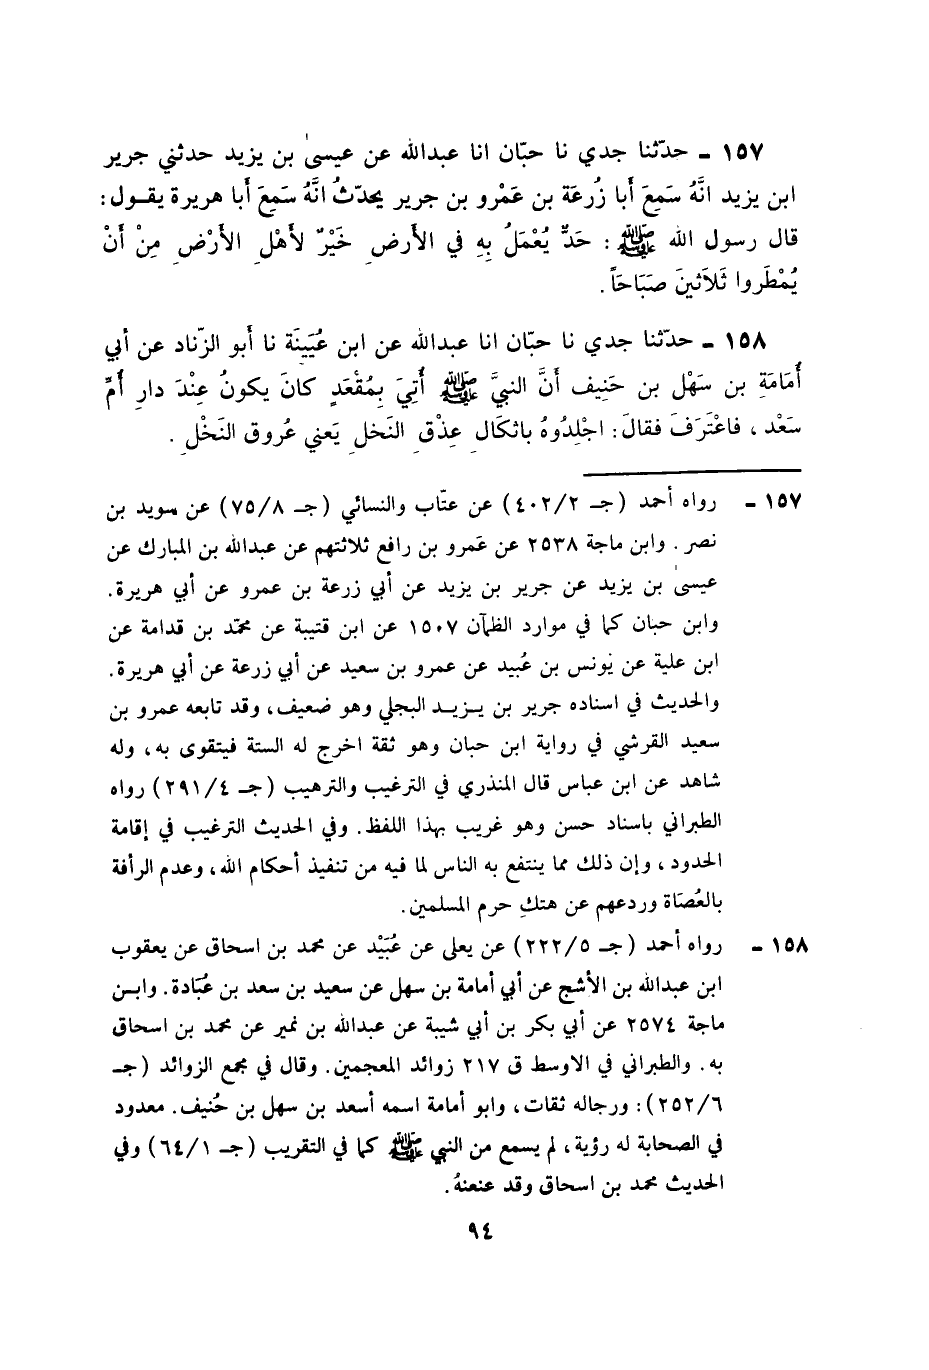 ١٥٧ ـ حدّثنا جدي نا حبّان انا عبدالله عن عيسىٰ بن يزيد حدثني جرير
ابن يزيد انَّهُ سَمِعَ أَبا زُرعَة بن عَمْرو بن جرير يحدّثُ انَّهُ سَمِعَ أَبا هريرة يقـول :
قال رسول الله ﷺ : حَدٌّ يُعْمَلُ بِهِ في الأَرضِ خَيْرٌ لأَهْلِ الأَرْضِ مِنْ أَنْ
يُمْطَروا ثَلاَثينَ صَبَاحَاً .
١٥٨ ـ حدّثنا جدي نا حبّان انا عبدالله عن ابن عُيَينَة نا أَبو الزّناد عن أبي
أُمَامَةِ بن سَهْل بن حَنِيف أَنَّ النبيَّ ﷺ أُتِيَ بِمُقْعَدٍ كانَ يكونُ عِنْدَ دارِ أُمِّ
سَعْد ، فاعْتَرَفَ فقالَ : اجْلِدُوهُ باثكَالِ عِذْقِ النَخلِ يَعني عُروق النَخْلِ .
١٥٧ ـ رواه أحمد (جـ ٤٠٢/٢) عن عتّاب والنسائي (جـ ٧٥/٨) عن سويد بن
نصر . وابن ماجة ٢٥٣٨ عن عَمرو بن رافع ثلاثتهم عن عبدالله بن المبارك عن
عيسىٰ بن يزيد عن جرير بن يزيد عن أبي زرعة بن عمرو عن أبي هريرة .
وابن حبان كما في موارد الظمآن ١٥٠٧ عن ابن قتيبة عن محمّد بن قدامة عن
ابن علية عن يُونس بن عُبيد عن عمرو بن سعيد عن أبي زرعة عن أبي هريرة .
والحديث في اسناده جرير بن يـزيـد البجلي وهو ضعيف ، وقد تابعه عمرو بن
سعيد القرشي في رواية ابن حبان وهو ثقة اخرج له الستة فيتقوى به ، وله
شاهد عن ابن عباس قال المنذري في الترغيب والترهيب (جـ ٢٩١/٤) رواه
الطبراني باسناد حسن وهو غريب بهذا اللفظ . وفي الحديث الترغيب في إقامة
الحدود ، وإن ذلك مما ينتفع به الناس لما فيه من تنفيذ أحكام الله ، وعدم الرأفة
بالعُصَاة وردعهم عن هتكِ حرم المسلمين .
١٥٨ ـ رواه أحمد (جـ ٢٢٢/٥) عن يعلى عن عُبَيْد عن محمد بن اسحاق عن يعقوب
ابن عبدالله بن الأشج عن أبي أمامة بن سهل عن سعيد بن سعد بن عُبَادة . وابـن
ماجة ٢٥٧٤ عن أبي بكر بن أبي شيبة عن عبدالله بن نمير عن محمد بن اسحاق
به . والطبراني في الاوسط ق ٢١٧ زوائد المعجمين . وقال في مجمع الزوائد (جـ
٢٥٢/٦) : ورجاله ثقات ، وابو أمامة اسمه أسعد بن سهل بن حُنيف . معدود
في الصحابة له رؤية ، لم يسمع من النبي ﷺ كما في التقريب (جـ ٦٤/١) وفي
الحديث محمد بن اسحاق وقد عنعنهُ .
٩٤